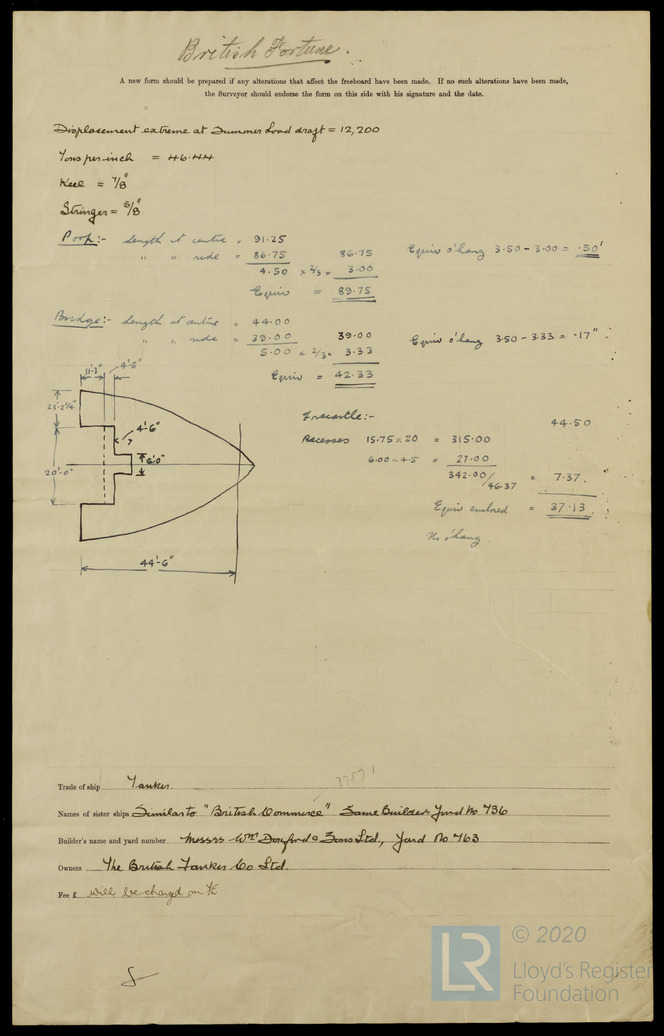 British Fortune.
A new form should be prepared if any alterations that affect the freeboard have been made. If no such alterations have been made,
the Surveyor should endorse the form on this side with his signature and the date.
Displacement extreme at Summer Load draft = 12,200
Tons per inch = 46.44
Keel = 7/8"
Stringer = 5/8"
Poop:- Length at centre = 91.25
" " side = 86.75 86.75
4.50 x 2/3 = 3.00
Equiv = 89.75
Equiv o'hang 3.50 - 3.00 = .50'
Bridge:- Length at centre = 44.00
" " side = 39.00 39.00
5.00 x 2/3 = 3.33
Equiv = 42.33
Equiv o'hang 3.50 - 3.33 = .17"
11'-3" 4'-6"
23'-2 1/4"
4'-6"
6'-0"
20'-0"
44'-6"
Forecastle:- 44.50
Recesses 15.75 x 20 = 315.00
6.00 x 4.5 = 27.00
342.00/46.37 = 7.37.
Equiv enclosed = 37.13.
No o'hang.
Trade of ship Tanker.
Names of sister ships Similar to "British Commerce" Same Builders Yard No 736
Builder's name and yard number Messrs Wm Doxford & Sons Ltd., Yard No 763
Owners The British Tanker Co Ltd.
Fee £ will be charged on
LR
© 2020
Lloyd's Register
Foundation